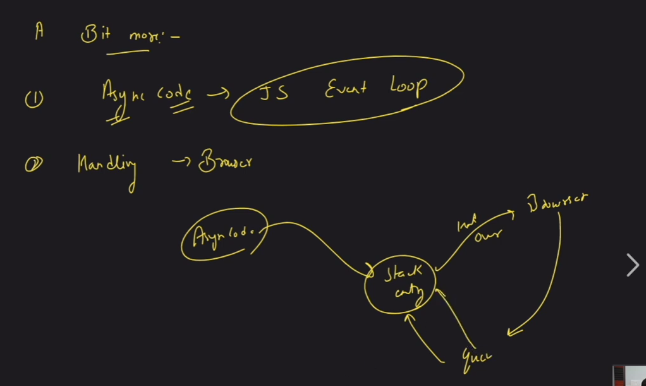 A Bit more:-
① Async code → JS Event Loop
② Handling → Browser
Async Code
Stack
entry
Browser
over